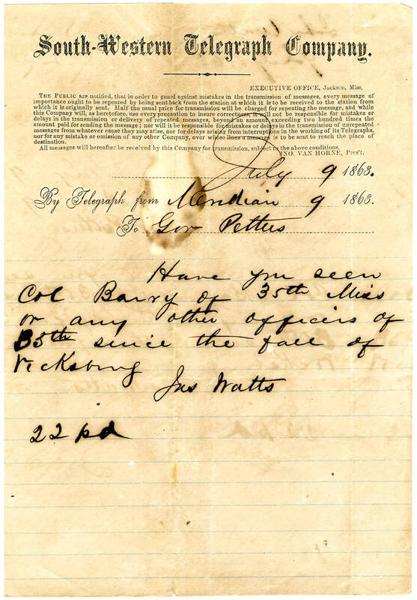 South-Western Telegraph Company.
EXECUTIVE OFFICE, Jackson, Miss,
THE PUBLIC are notified, that in order to guard against mistakes in the transmission of messages, every message of
importance ought to be repeated by being sent back from the station at which it is to be received to the station from
which it is originally sent. Half the usual price for transmission will be charged for repeating the message, and while
this Company will, as heretofore, use every precaution to insure correctness, it will not be responsible for mistakes or
delays in the transmission or delivery of repeated messages, beyond an amount exceeding two hundred times the
amount paid for sending the message; nor will it be responsible for mistakes or delays in the transmission of unrepeated
messages from whatever cause they may arise, nor for delays arising from interruptions in the working of its Telegraphs,
nor for any mistake or omission of any other Company, over whose lines a message is to be sent to reach the place of
destination.
All messages will hereafter be received by this Company for transmission, subject to the above conditions.
JNO. VAN HORNE, Pres't.
July 9 1863.
By Telegraph from Meridian 9 1863.
To Gov Pettus
Have you seen
Col Barry of 35th Miss
or any other officers of
35th since the fall of
Vicksburg
Jas Watts
22 pd